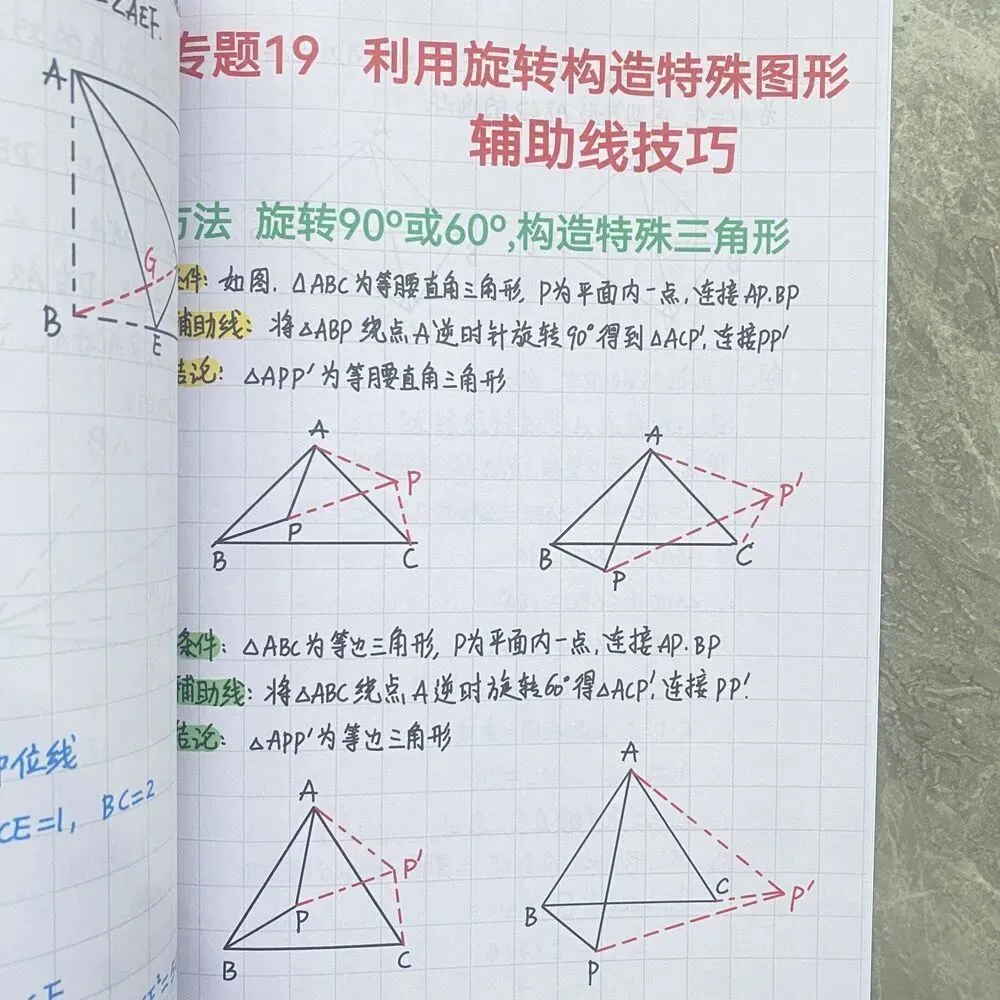 =∠AEF.
A
G
B
E
中位线
CE=1, BC=2
专题19 利用旋转构造特殊图形
辅助线技巧
方法 旋转90°或60°,构造特殊三角形
条件: 如图. △ABC为等腰直角三角形, P为平面内一点, 连接AP.BP
辅助线: 将△ABP绕点A逆时针旋转90°得到△ACP', 连接PP'
结论: △APP'为等腰直角三角形
A
P
P
B
C
A
P'
B
C
P
条件: △ABC为等边三角形, P为平面内一点, 连接AP.BP
辅助线: 将△ABC绕点A逆时旋转60°得△ACP', 连接PP'.
结论: △APP'为等边三角形
A
P'
P
B
C
A
C
P'
B
P